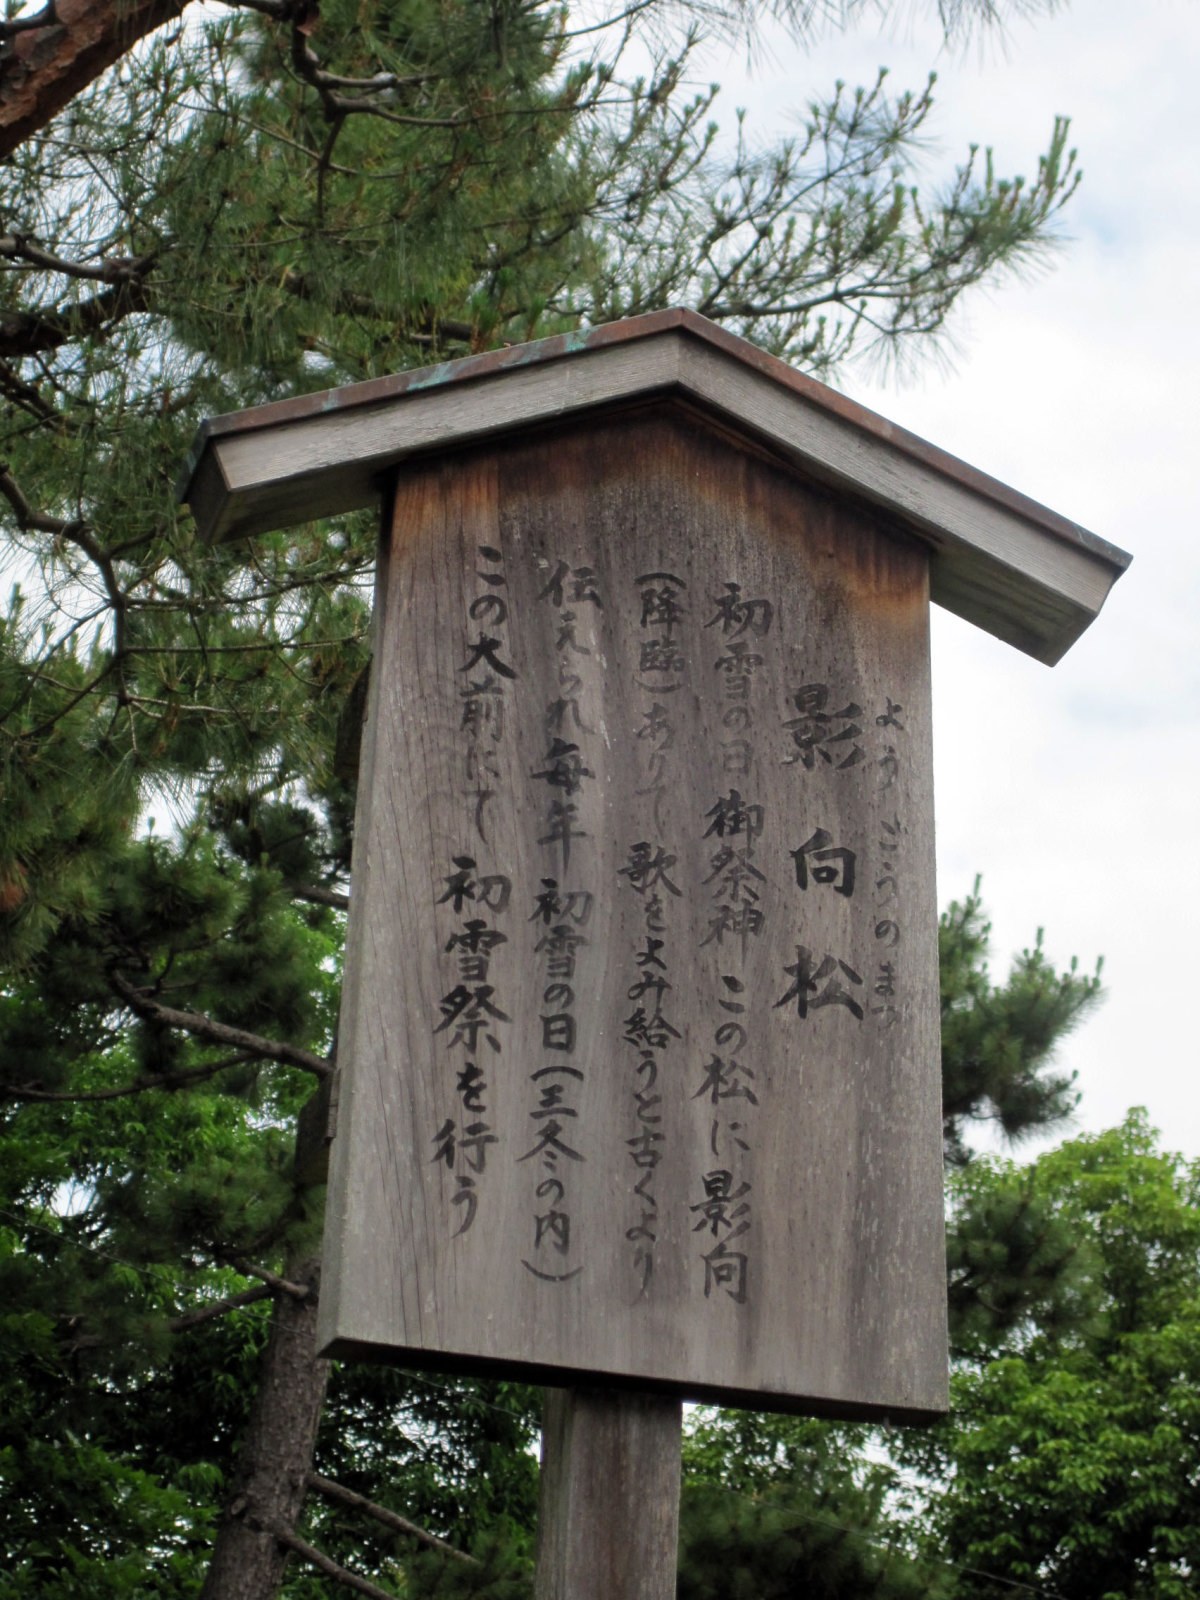 ようごうのまつ
影向松
初雪の日御祭神この松に影向
(降臨)ありて歌をよみ給うと古くより
伝えられ毎年初雪の日(三冬の内)
この大前にて初雪祭を行う